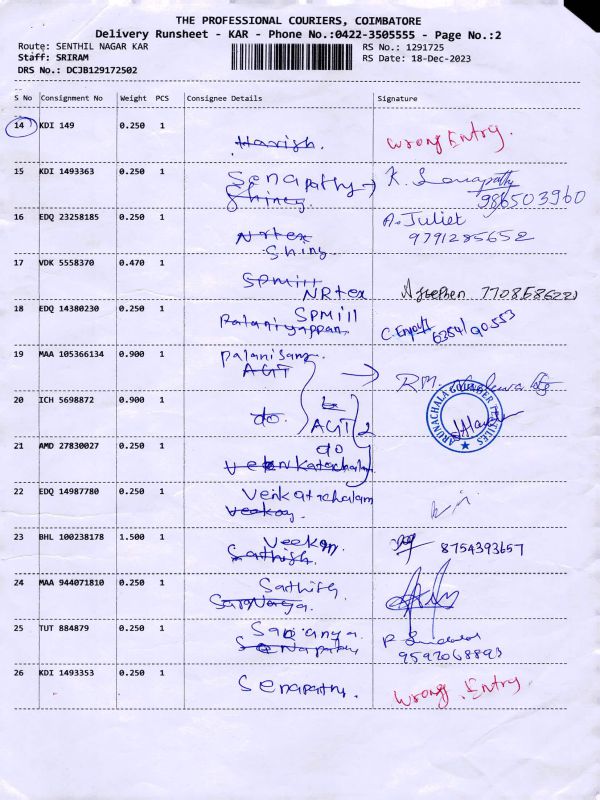 THE PROFESSIONAL COURIERS, COIMBATORE
Delivery Runsheet - KAR - Phone No.:0422-3505555 - Page No.:2
Route: SENTHIL NAGAR KAR RS No.: 1291725
Staff: SRIRAM RS Date: 18-Dec-2023
DRS No.: DCJB129172502
S No Consignment No Weight PCS Consignee Details Signature
14 KDI 149 0.250 1 Harish. Wrong Entry.
15 KDI 1493363 0.250 1 Senapathy K. Senapathy
Shiney 986503960
16 EDQ 23258185 0.250 1 Nrtex A. Juliet
Shiny 9791285652
17 VDK 5558370 0.470 1 SPmill
NRtex 7708586221
18 EDQ 14380230 0.250 1 SPMill
Palaniyappan. 6254190553
19 MAA 105366134 0.900 1 palanisamy.
AGT RM.
20 ICH 5698872 0.900 1 do.
AGT 2
ARUNACHALA GOUNDER TEXTILES
21 AMD 27830027 0.250 1 do
Venkatachalam
22 EDQ 14987780 0.250 1 Venkatachalam
Veekay.
23 BHL 100238178 1.500 1 Veekay. 8754393657
Sathish.
24 MAA 944071810 0.250 1 Sathish.
Saranaya.
25 TUT 884879 0.250 1 Saranya. P
Senapathy 9592068893
26 KDI 1493353 0.250 1 Senapathy. Wrong Entry.